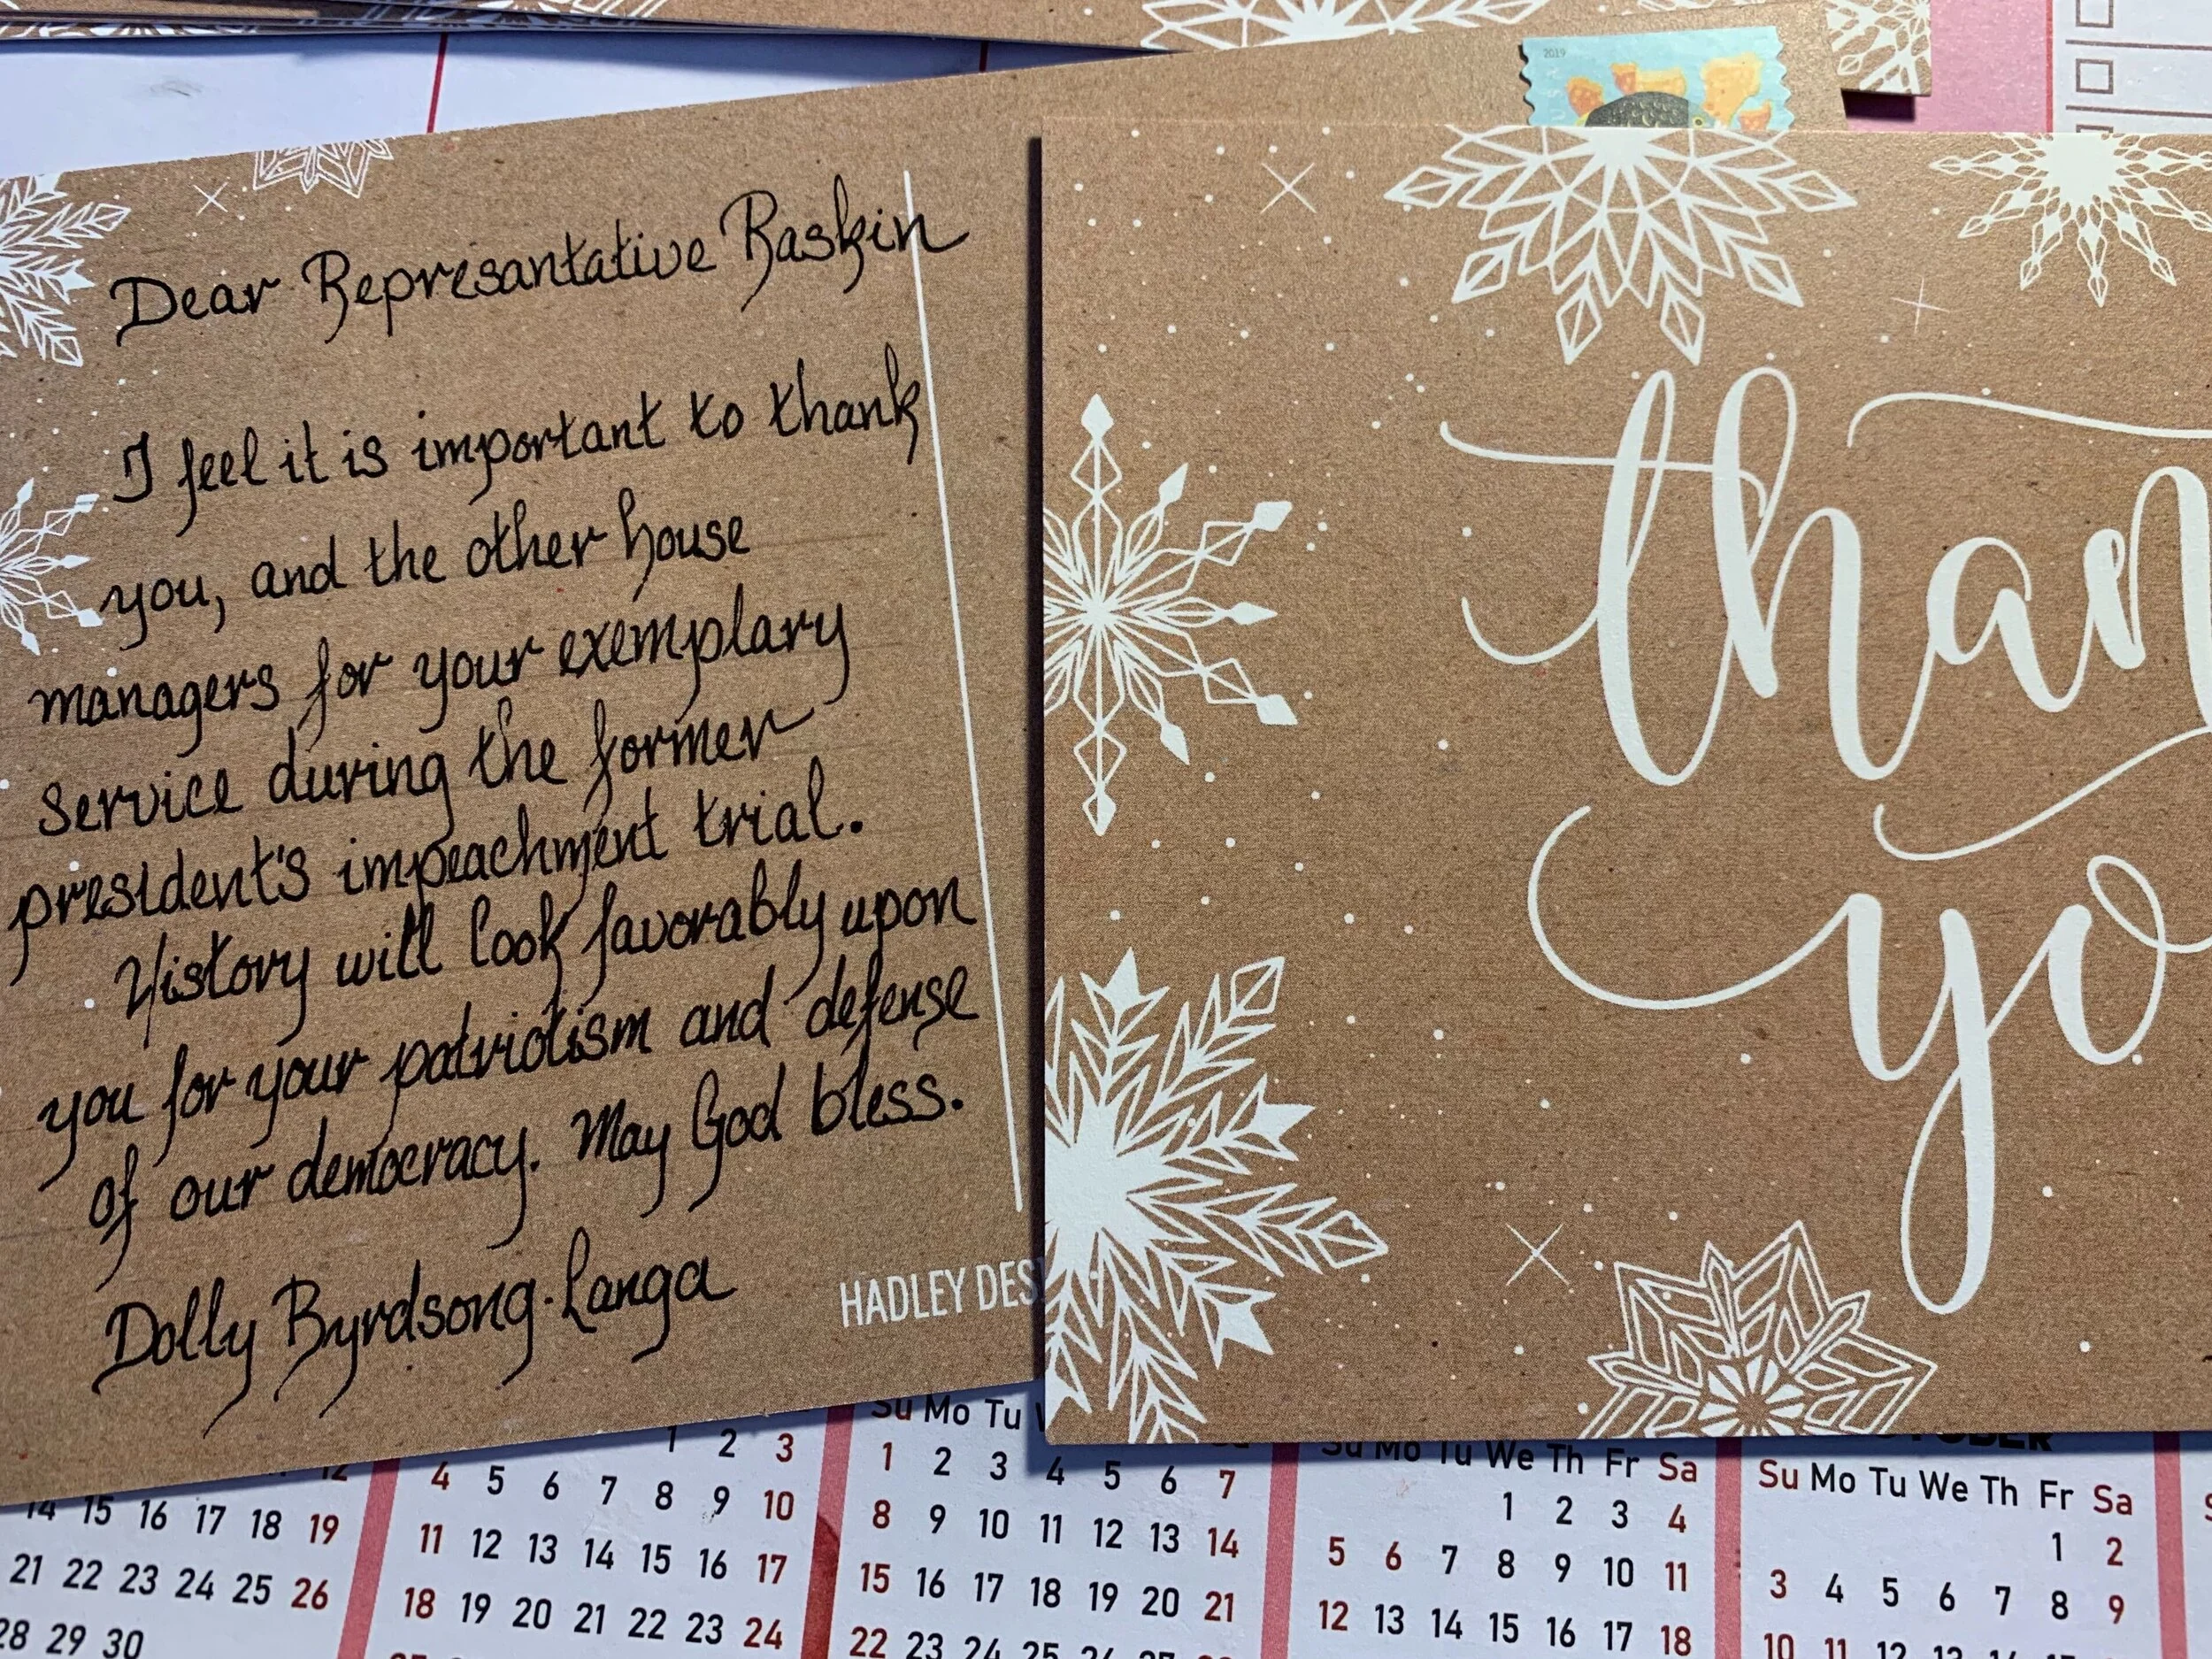 2019
Dear Represantative Raskin
I feel it is important to thank
you, and the other house
managers for your exemplary
service during the former
president's impeachment trial.
History will look favorably upon
you for your patriotism and defense
of our democracy. May God bless.
Dolly Byrdsong-Langa
HADLEY DES
than
yo
Su Mo Tu
Su Mo Tu We Th Fr Sa
Su Mo Tu We Th Fr Sa
12
14 15 16 17 18 19
21 22 23 24 25 26
28 29 30
1 2 3
4 5 6 7 8 9 10
11 12 13 14 15 16 17
18 19 20 21 22 23 24
1 2 3 4 5 6 7
8 9 10 11 12 13 14
15 16 17 18 19 20 21
22 23 24 25 26 27
1 2 3 4
5 6 7 8 9 10 11
12 13 14 15 16 17 18
1 2
3 4 5 6 7 8 9
10 11 12 13